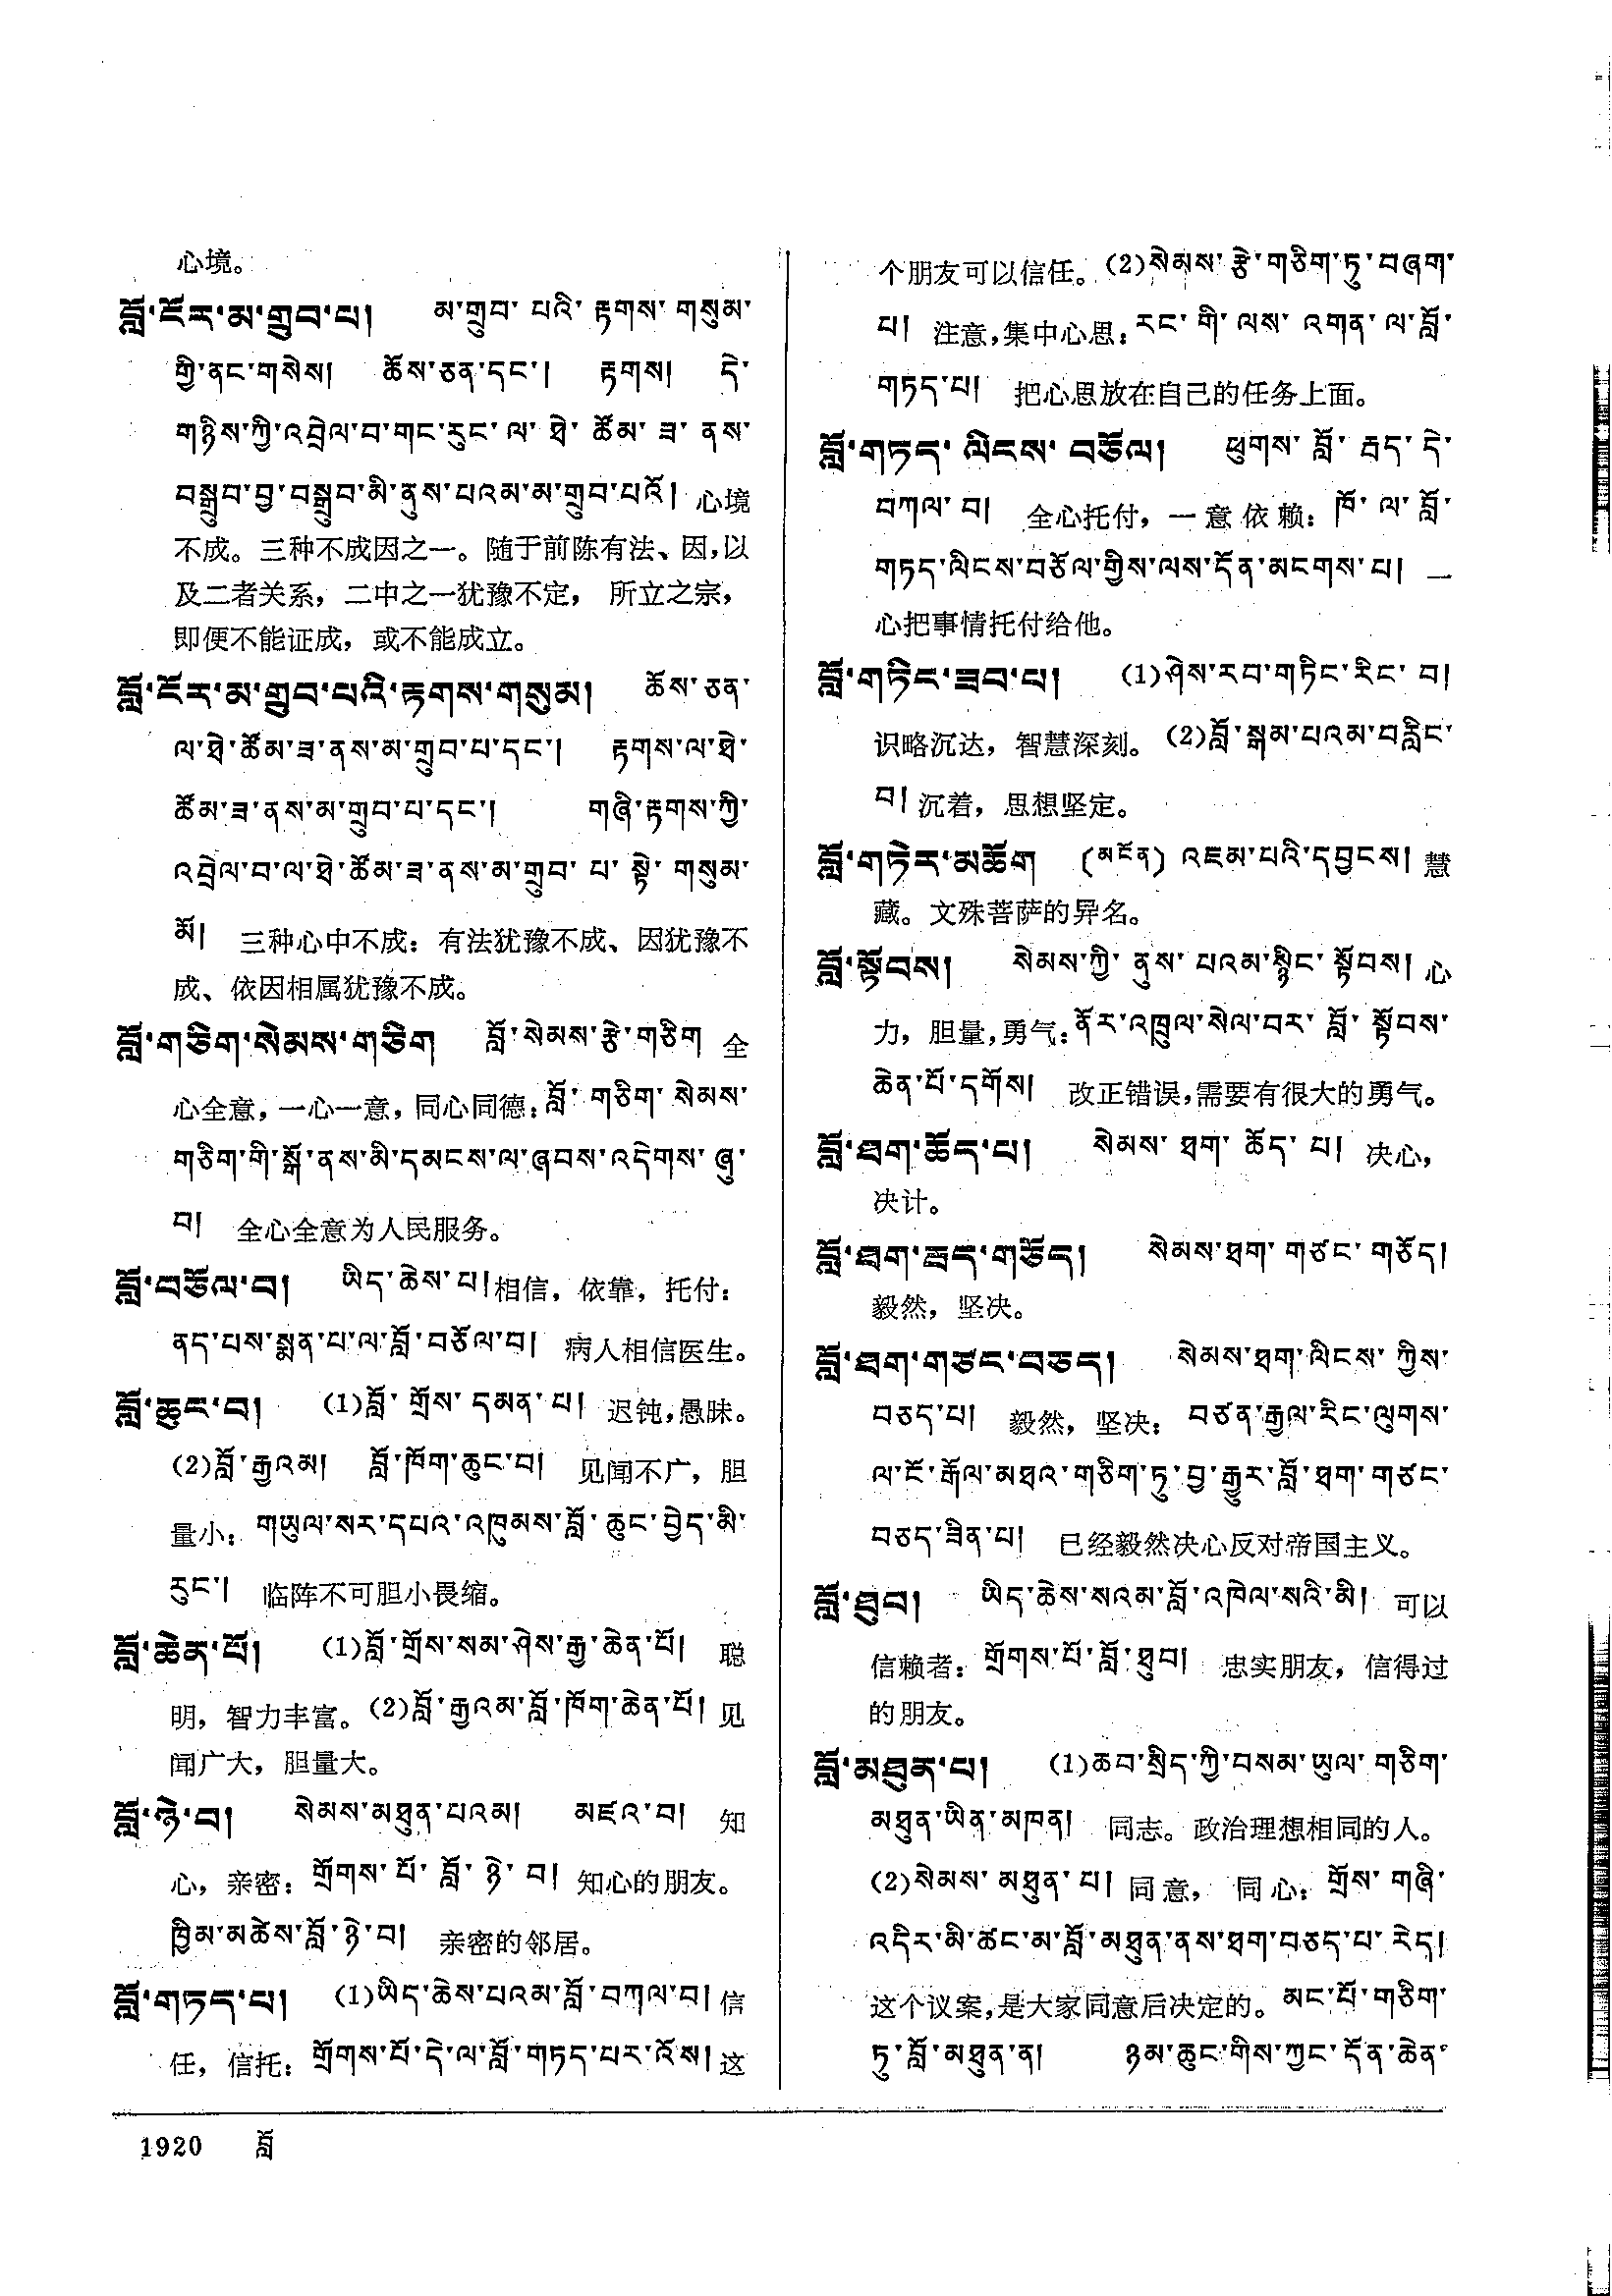 心境。
བློ་ངོར་མ་གྲུབ་པ། མ་གྲུབ་པའི་རྟགས་གསུམ་
གྱི་ནང་གསེས། ཆོས་ཅན་དང་། རྟགས། དེ་
གཉིས་ཀྱི་འབྲེལ་བ་གང་རུང་ལ་ཐེ་ཚོམ་ཟ་ནས་
བསྒྲུབ་བྱ་བསྒྲུབ་མི་ནུས་པའམ་མ་གྲུབ་པའོ། 心境
不成。三种不成因之一。随于前陈有法、因,以
及二者关系，二中之一犹豫不定，所立之宗，
即便不能证成，或不能成立。
བློ་ངོར་མ་གྲུབ་པའི་རྟགས་གསུམ། ཆོས་ཅན་
ལ་ཐེ་ཚོམ་ཟ་ནས་མ་གྲུབ་པ་དང་། རྟགས་ལ་ཐེ་
ཚོམ་ཟ་ནས་མ་གྲུབ་པ་དང་། གཞི་རྟགས་ཀྱི་
འབྲེལ་བ་ལ་ཐེ་ཚོམ་ཟ་ནས་མ་གྲུབ་པ་སྟེ་གསུམ་
མོ། 三种心中不成：有法犹豫不成、因犹豫不
成、依因相属犹豫不成。
བློ་གཅིག་སེམས་གཅིག བློ་སེམས་རྩེ་གཅིག 全
心全意,一心一意，同心同德：བློ་གཅིག་སེམས་
གཅིག་གི་སྒོ་ནས་མི་དམངས་ལ་ཞབས་འདེགས་ཞུ་
བ། 全心全意为人民服务。
བློ་བཅོལ་བ། ཡིད་ཆེས་པ།相信，依靠，托付：
ནད་པས་སྨན་པ་ལ་བློ་བཅོལ་བ། 病人相信医生。
བློ་ཆུང་བ། (1)བློ་གྲོས་དམན་པ། 迟钝,愚昧。
(2)བློ་རྒྱའམ། བློ་ཁོག་ཆུང་བ། 见闻不广，胆
量小：གཡུལ་སར་དཔའ་འཁུམས་བློ་ཆུང་བྱེད་མི་
རུང་། 临阵不可胆小畏缩。
བློ་ཆེན་པོ། (1)བློ་གྲོས་སམ་ཤེས་རྒྱ་ཆེན་པོ། 聪
明，智力丰富。(2)བློ་རྒྱའམ་བློ་ཁོག་ཆེན་པོ། 见
闻广大，胆量大。
བློ་ཉེ་བ། སེམས་མཐུན་པའམ། མཛའ་བ། 知
心，亲密：གྲོགས་པོ་བློ་ཉེ་བ། 知心的朋友。
ཁྱིམ་མཚེས་བློ་ཉེ་བ། 亲密的邻居。
བློ་གཏད་པ། (1)ཡིད་ཆེས་པའམ་བློ་བཀལ་བ། 信
任，信托：གྲོགས་པོ་དེ་ལ་བློ་གཏད་པར་འོས། 这
个朋友可以信任。(2)སེམས་རྩེ་གཅིག་ཏུ་བཞག་
པ། 注意,集中心思：རང་གི་ལས་འགན་ལ་བློ་
གཏད་པ། 把心思放在自己的任务上面。
བློ་གཏད་ལིངས་བཅོལ། ཕུགས་བློ་རྦད་དེ་
བཀལ་བ། 全心托付，一意依赖：ཁོ་ལ་བློ་
གཏད་ལིངས་བཅོལ་གྱིས་ལས་དོན་མངགས་པ། 一
心把事情托付给他。
བློ་གཏིང་ཟབ་པ། (1)ཤེས་རབ་གཏིང་རིང་བ།
识略沉达，智慧深刻。(2)བློ་སྒམ་པའམ་བརླིང་
བ། 沉着，思想坚定。
བློ་གཏེར་མཆོག (མངོན) འཇམ་པའི་དབྱངས། 慧
藏。文殊菩萨的异名。
བློ་སྟོབས། སེམས་ཀྱི་ནུས་པའམ་སྙིང་སྟོབས། 心
力，胆量,勇气：ནོར་འཁྲུལ་སེལ་བར་བློ་སྟོབས་
ཆེན་པོ་དགོས། 改正错误,需要有很大的勇气。
བློ་ཐག་ཆོད་པ། སེམས་ཐག་ཆོད་པ། 决心，
决计。
བློ་ཐག་རྦད་གཅོད། སེམས་ཐག་གཙང་གཅོད།
毅然，坚决。
བློ་ཐག་གཙང་བཅད། སེམས་ཐག་ལིངས་ཀྱིས་
བཅད་པ། 毅然，坚决：བཙན་རྒྱལ་རིང་ལུགས་
ལ་ངོ་རྒོལ་མཐའ་གཅིག་ཏུ་བྱ་རྒྱུར་བློ་ཐག་གཙང་
བཅད་ཟིན་པ། 已经毅然决心反对帝国主义。
བློ་ཐུབ། ཡིད་ཆེས་སའམ་བློ་འཁེལ་སའི་མི། 可以
信赖者：གྲོགས་པོ་བློ་ཐུབ། 忠实朋友，信得过
的朋友。
བློ་མཐུན་པ། (1)ཆབ་སྲིད་ཀྱི་བསམ་ཡུལ་གཅིག་
མཐུན་ཡིན་མཁན། 同志。政治理想相同的人。
(2)སེམས་མཐུན་པ། 同意，同心：གྲོས་གཞི་
འདིར་མི་ཚང་མ་བློ་མཐུན་ནས་ཐག་བཅད་པ་རེད།
这个议案,是大家同意后决定的。མང་པོ་གཅིག་
ཏུ་བློ་མཐུན་ན། ཉམ་ཆུང་གིས་ཀྱང་དོན་ཆེན་
1920 བློ